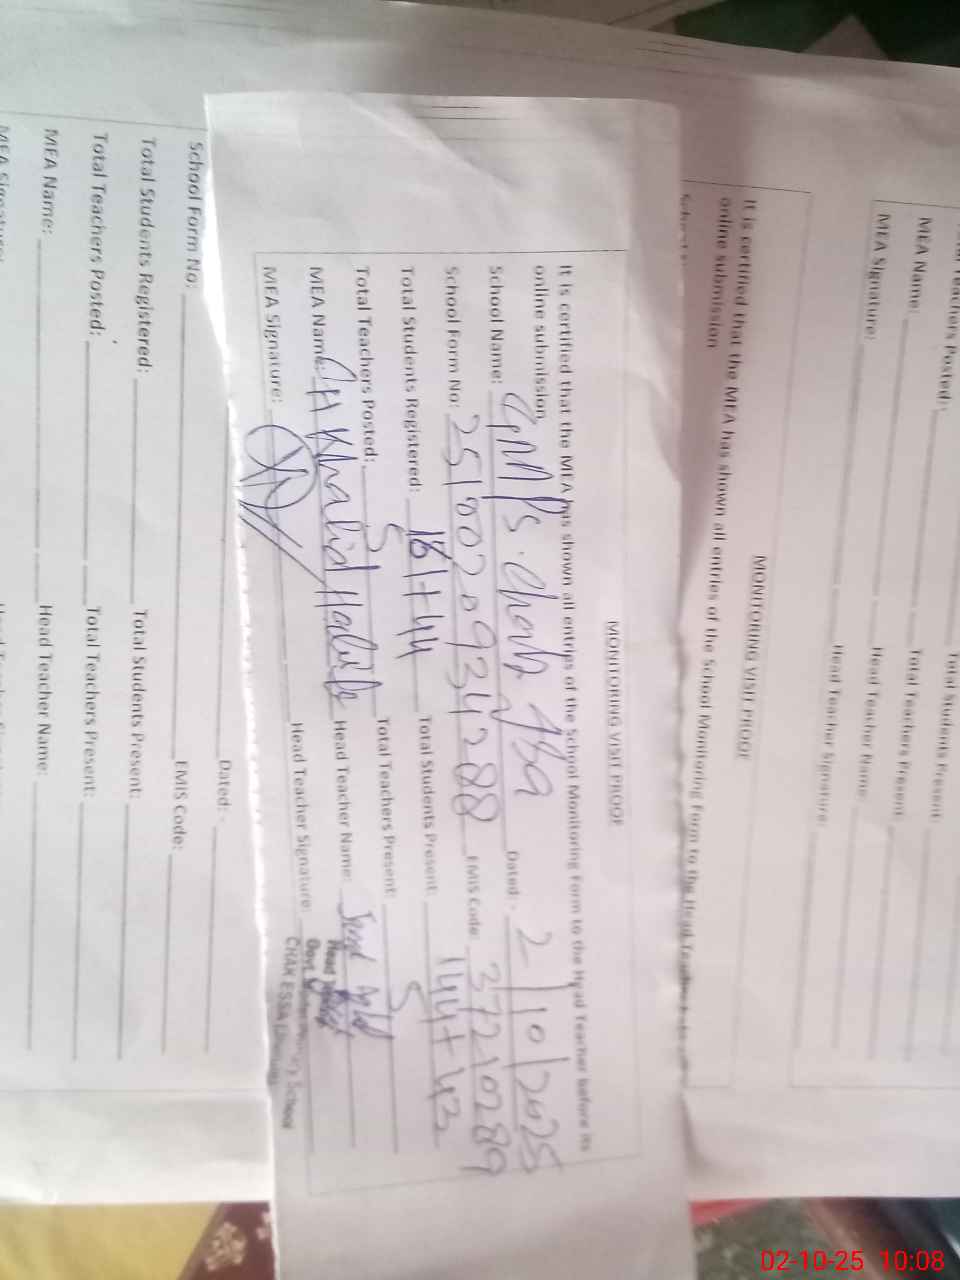 Total Teachers Posted:
Total Students Present:
MEA Name:
Total Teachers Present:
MEA Signature:
Head Teacher Name:
Head Teacher Signature:
MONITORING VISIT PROOF
It is certified that the MEA has shown all entries of the School Monitoring Form to the Head Teacher before its
online submission
MONITORING VISIT PROOF
It is certified that the MEA has shown all entries of the School Monitoring Form to the Head Teacher before its
online submission
School Name: GMPS. Dated: - 2/10/2025
School Form No: 2510020934288 EMIS Code: 37210289
Total Students Registered: 161+44 Total Students Present: 144+43
Total Teachers Posted: 5 Total Teachers Present: 5
MEA Name: CH Khalid Habib Head Teacher Name:
MEA Signature: Head Teacher Signature:
Head
Govt. School
CHAK ESSA
Dated: -
School Form No: EMIS Code:
Total Students Registered: Total Students Present:
Total Teachers Posted: Total Teachers Present:
MEA Name: Head Teacher Name:
MEA Signature:
02-10-25 10:08